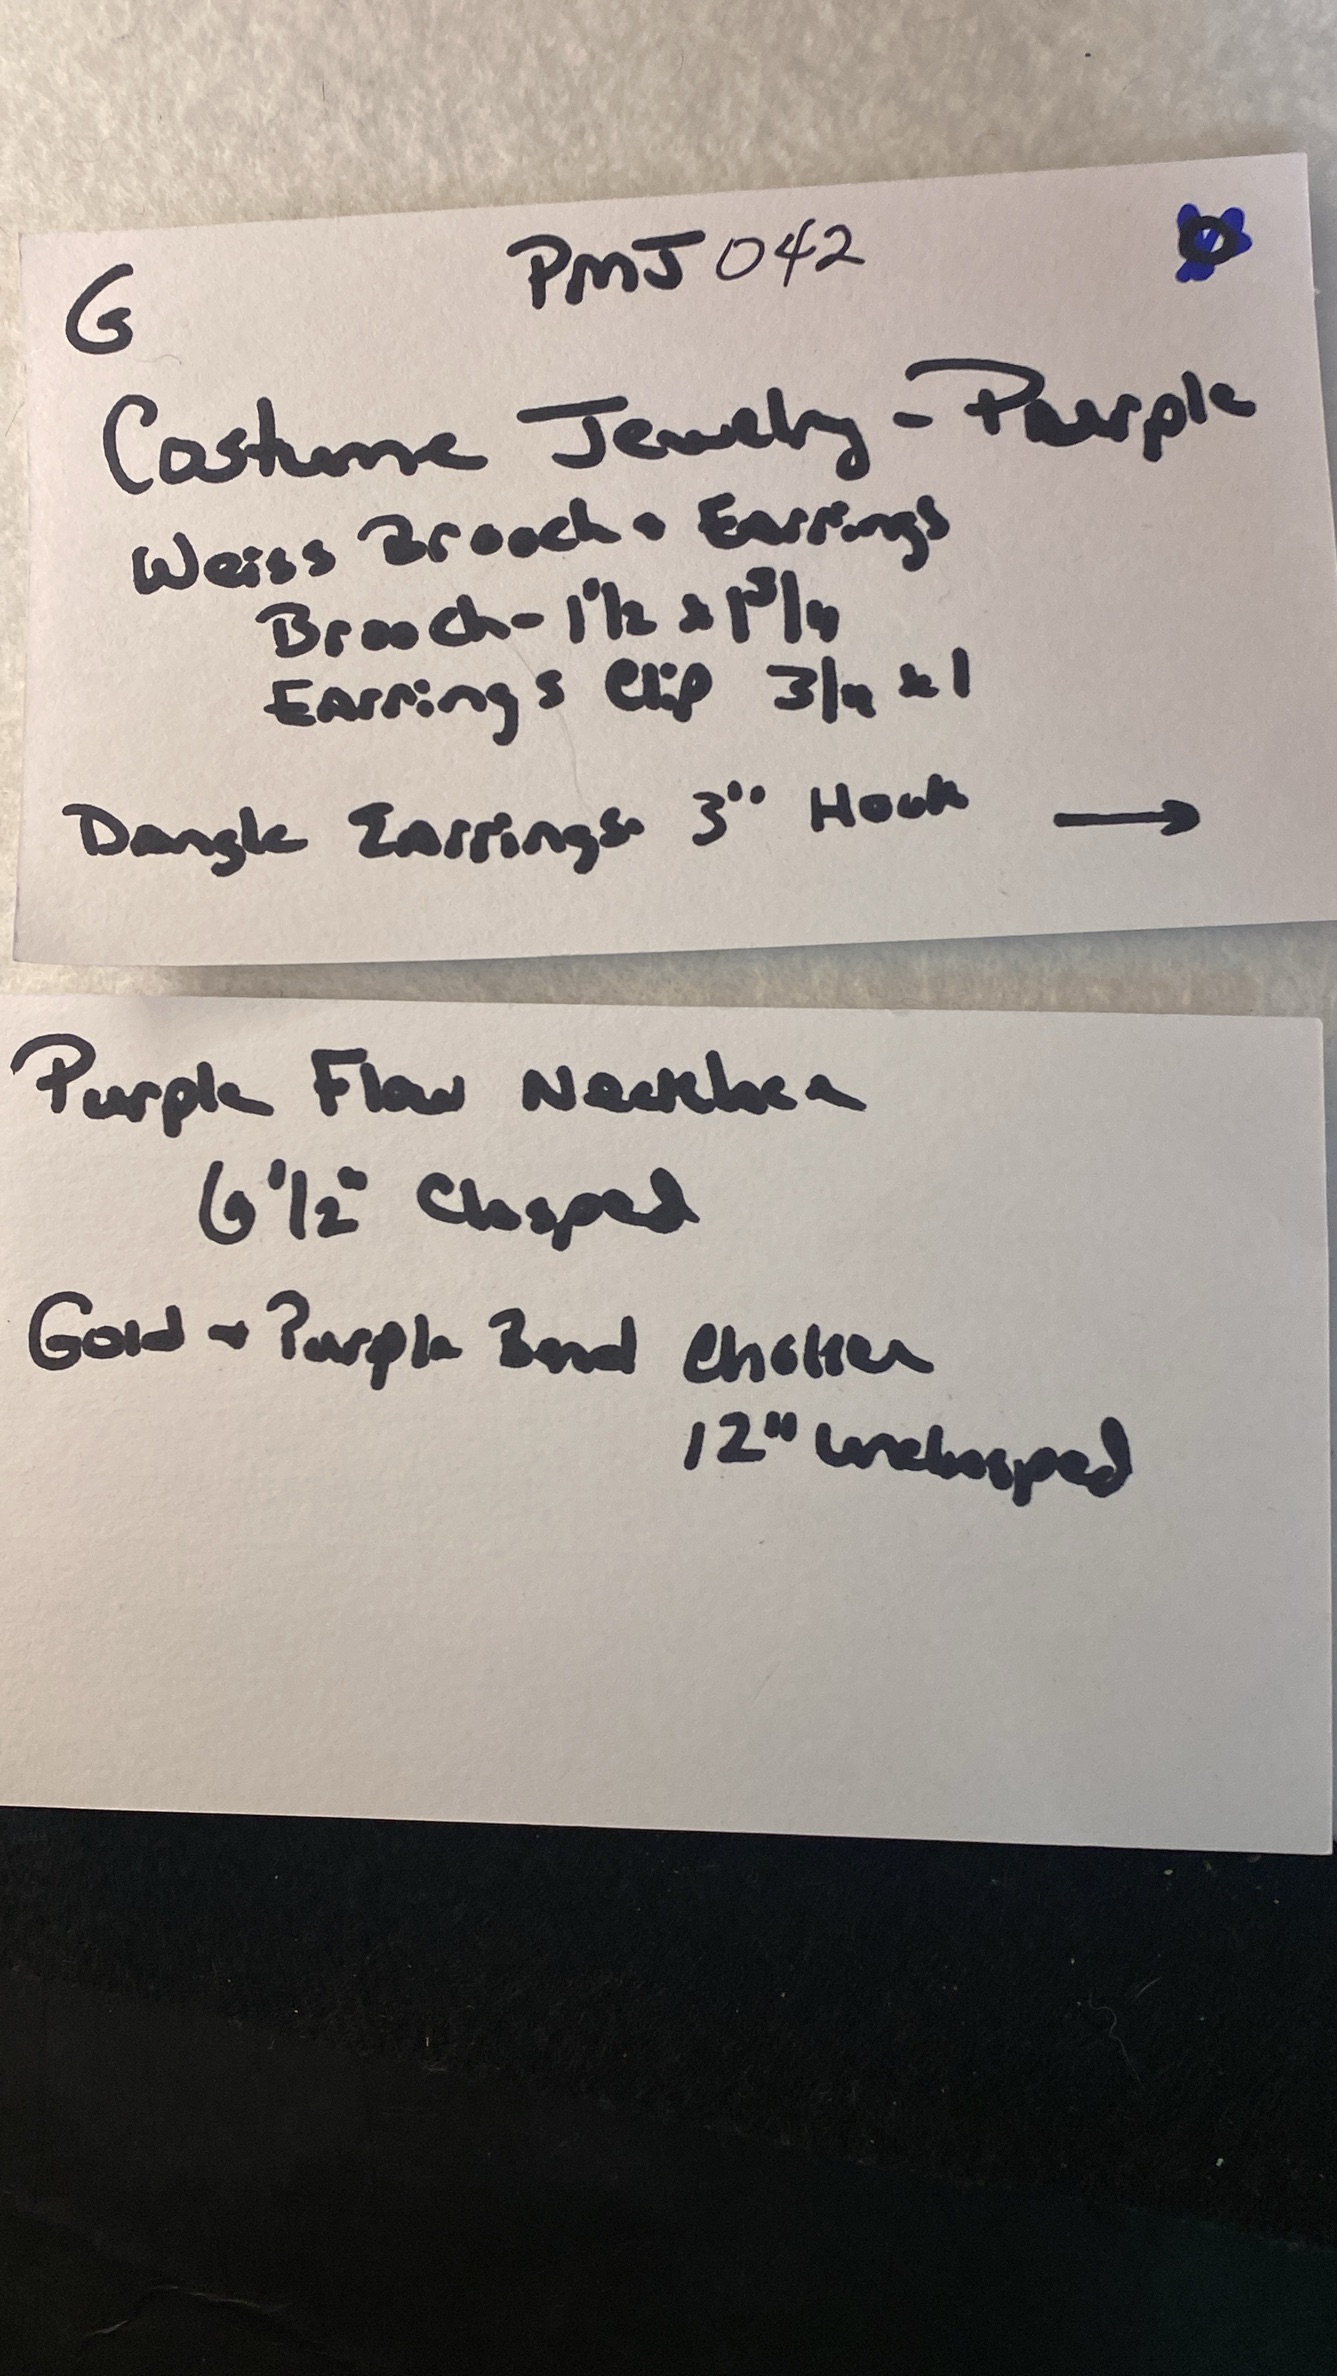 PMJ 042
G
Costume Jewelry - Purple
Weiss Brooch + Earrings
Brooch - 1 1/2 x 1 3/4
Earrings Clip 3/4 x 1
Dangle Earrings 3" Hook →
Purple Flow Necklace
6 1/2" Clasped
Gold + Purple Choker
12" unclasped